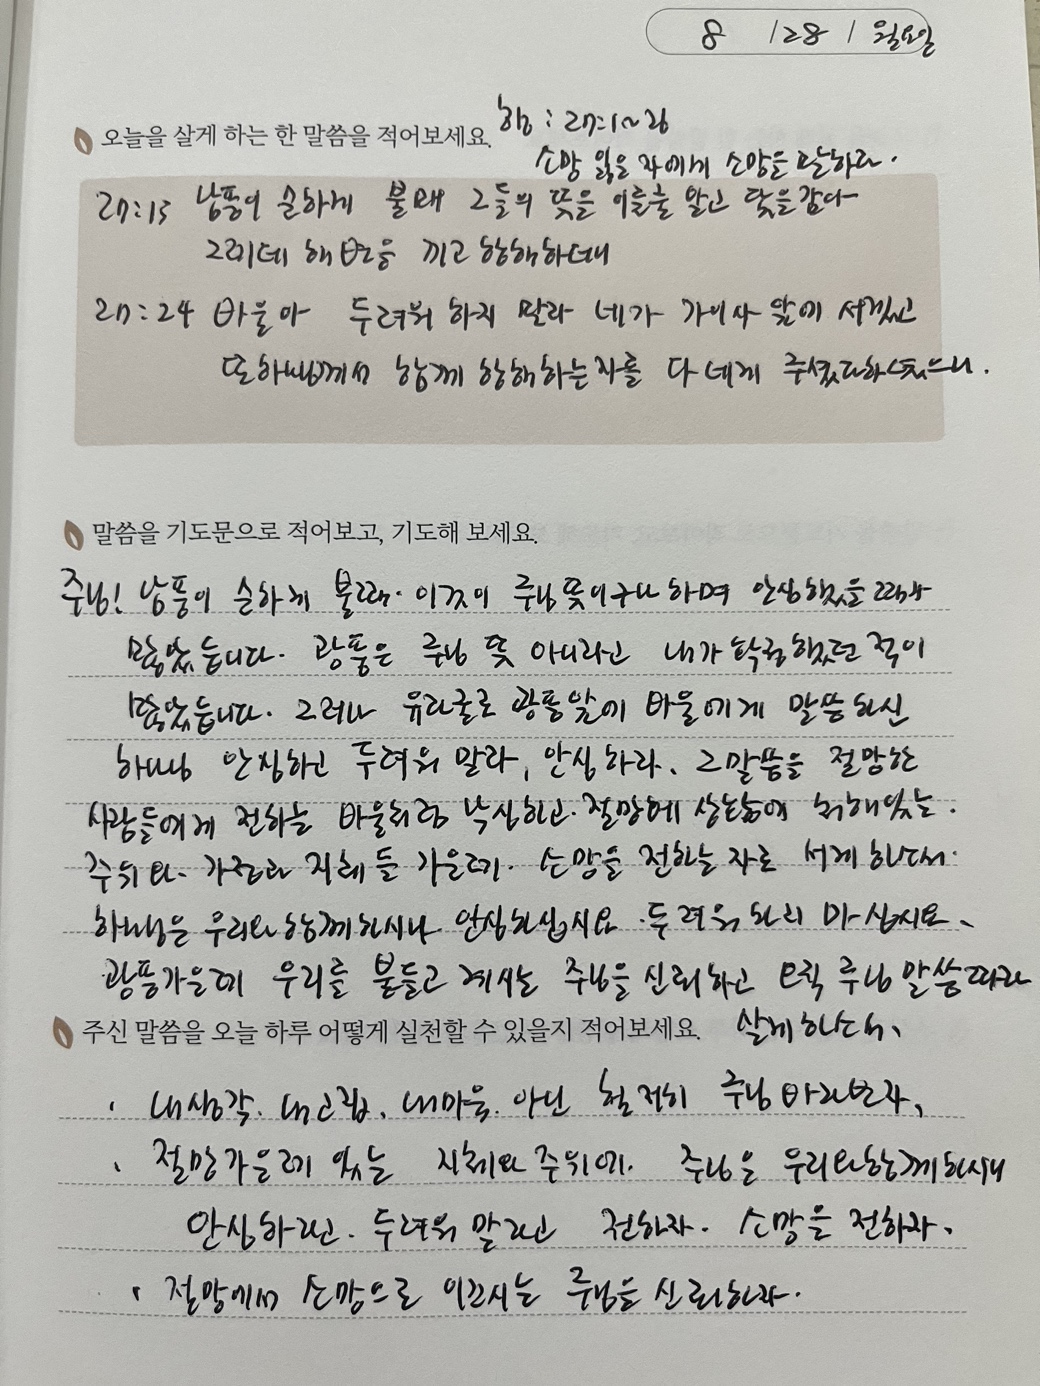 8 / 28 / 월요일
오늘을 살게 하는 한 말씀을 적어보세요.
행 : 27:1~26
소망 잃은 자에게 소망을 말하라.
27:13 남풍이 순하게 불매 그들의 뜻을 이룬줄 알고 닻을감아
그레데 해변을 끼고 항해하더니
27:24 바울아 두려워 하지 말라 네가 가이사 앞에 서겠고
또하나님께서 함께 항해하는자를 다 네게 주셨다하셨으니.
말씀을 기도문으로 적어보고, 기도해 보세요.
주님! 남풍이 순하게 불때. 이것이 주님뜻이구나 하며 안심했을 때가
많았습니다. 광풍은 주님 뜻 아니라고 내가 착각했었던 적이
많았습니다. 그러나 유라굴로 광풍앞에 바울에게 말씀하신
하나님 안심하고 두려워 말라, 안심하라. 그말씀을 절망한
사람들에게 전하는 바울처럼 낙심하고. 절망에 상태에 처해있는.
주위와. 가족과 지체들 가운데. 소망을 전하는 자로 서게 하소서.
하나님은 우리와 함께하시니 안심하십시요. 두려워 하지 마십시요.
광풍가운데 우리를 붙들고 계시는 주님을 신뢰하고 오직 주님 말씀따라
살게하소서.
주신 말씀을 오늘 하루 어떻게 실천할 수 있을지 적어보세요.
. 내생각. 내고집. 내마음. 아닌 철저히 주님 바라보자.
. 절망가운데 있는 지체와 주위에. 주님은 우리와함께하시니
안심하라고. 두려워 말라고 전하자. 소망을 전하자.
. 절망에서 소망으로 이끄시는 주님을 신뢰하자.